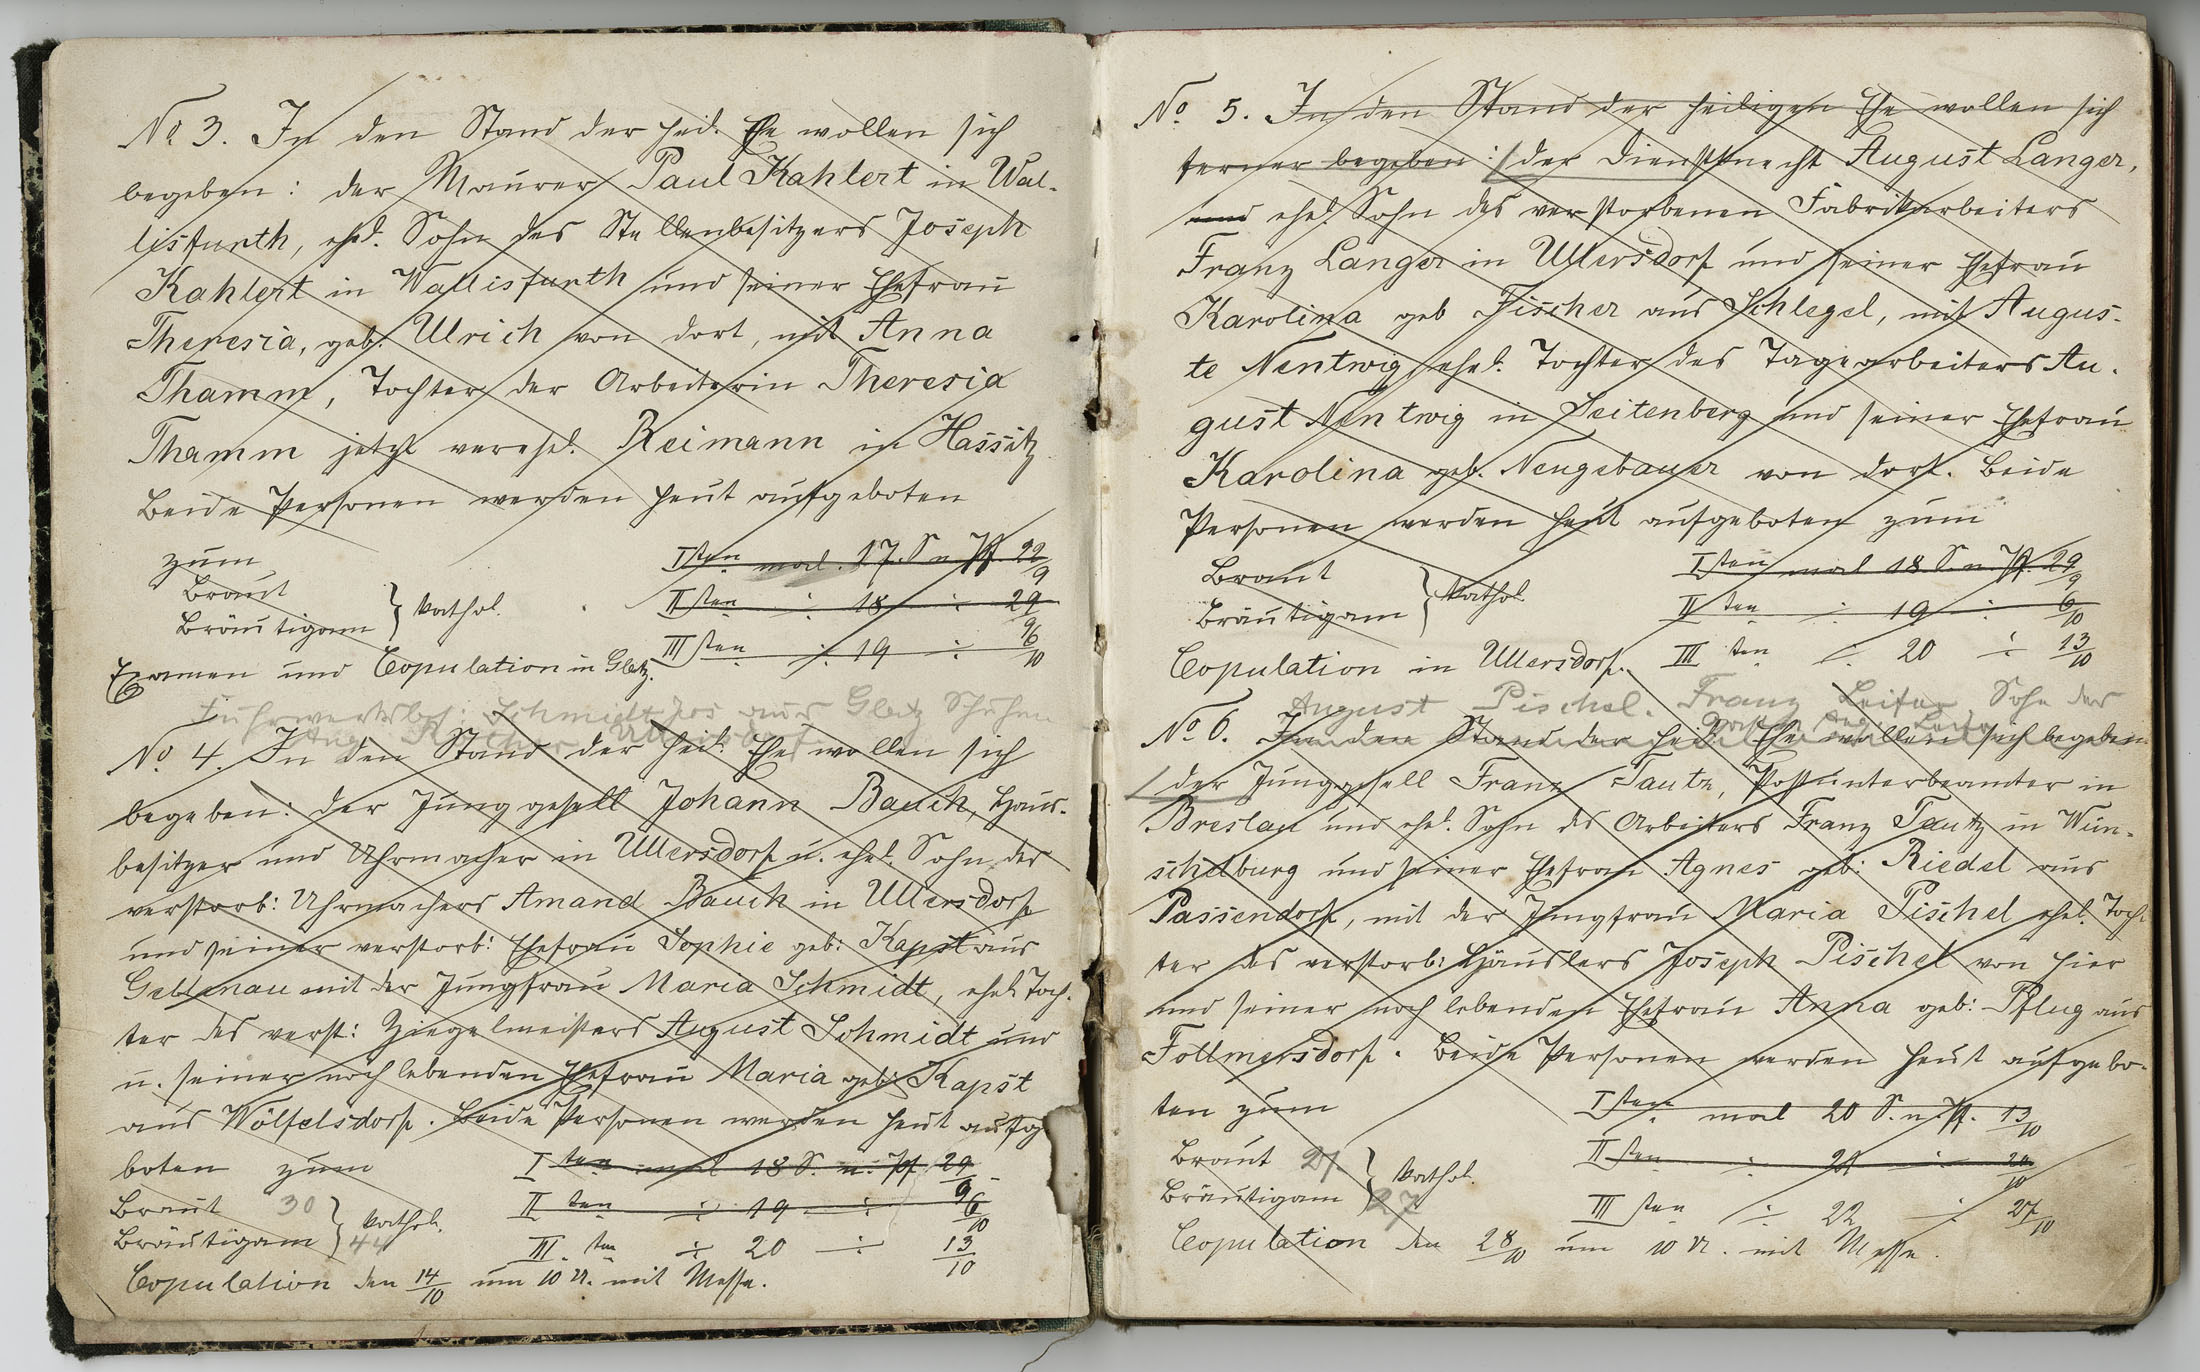 No 3. In den Stand der heil. Ehe wollen sich
begeben: der Maurer Paul Kahlert in Wal-
lisfurth, ehel. Sohn des Stellenbesitzers Joseph
Kahlert in Wallisfurth und seiner Ehefrau
Theresia, geb. Ulrich von dort, mit Anna
Thamm, Tochter der Arbeiterin Theresia
Thamm jetzt verehel. Reimann in Hassitz
Beide Personen werden heut aufgeboten
zum
Iten mal. 17. S. n. Pf. 22/9
Braut
Bräutigam } kathol.
IIten ÷ 18 ÷ 29/9
IIIten ÷ 19 ÷ 6/10
Examen und Copulation in Glatz.
Fuhrwerksbes: Schmidt Jos aus Glatz
Aug.
No 4. In den Stand der heil. Ehe wollen sich
begeben: der Junggesell Johann Bauch, Haus-
besitzer und Uhrmacher in Ullersdorf u. ehel. Sohn des
verstorb: Uhrmachers Amand Bauch in Ullersdorf
und seiner verstorb: Ehefrau Sophie geb: Kapst aus
Gellenau mit der Jungfrau Maria Schmidt, ehel. Toch-
ter des verst: Ziegelmeisters August Schmidt und
u. seiner noch lebenden Ehefrau Maria geb: Kapst
aus Wölfelsdorf. Beide Personen werden heut aufge
boten zum
Iten mal 18 S. n. Pf. 29/9
Braut 30
Bräutigam 44 } kathol.
IIten ÷ 19 ÷ 6/10
III.ten ÷ 20 ÷ 13/10
Copulation den 14/10 um 10 U. mit Messe.
No 5. In den Stand der heiligen Ehe wollen sich
ferner begeben: der Dienstknecht August Langer,
und ehel. Sohn des verstorbenen Fabrikarbeiters
Franz Langer in Ullersdorf und seiner Ehefrau
Karolina geb Fischer aus Schlegel, mit Augus-
te Nentwig ehel. Tochter des Tagearbeiters Au-
gust Nentwig in Seitenberg und seiner Ehefrau
Karolina geb. Neugebauer von dort. Beide
Personen werden heut aufgeboten zum
Iten mal 18 S. n. Pf. 29/9
Braut
Bräutigam } kathol.
IIten ÷ 19 ÷ 6/10
Copulation in Ullersdorf. IIIten ÷ 20 ÷ 13/10
August Pischel. Franz Sohn des
No 6. In den Stand der heil. Ehe wollen sich begeben
der Junggesell Franz Tautz, Postunterbeamter in
Breslau und ehel. Sohn des Arbeiters Franz Tautz in Wün-
schelburg und seiner Ehefrau Agnes geb: Riedel aus
Passendorf, mit der Jungfrau Maria Pischel ehel. Toch
ter des verstorb: Häuslers Joseph Pischel von hier
und seiner noch lebenden Ehefrau Anna geb: Pflug aus
Follmersdorf. Beide Personen werden heut aufgebo-
ten zum
Iten mal 20 S. n. Pf. 13/10
Braut 27
Bräutigam 27 } kathol.
IIten ÷ 21 ÷ 20/10
IIIten ÷ 22 ÷ 27/10
Copulation den 28/10 um 10 U. mit Messe.